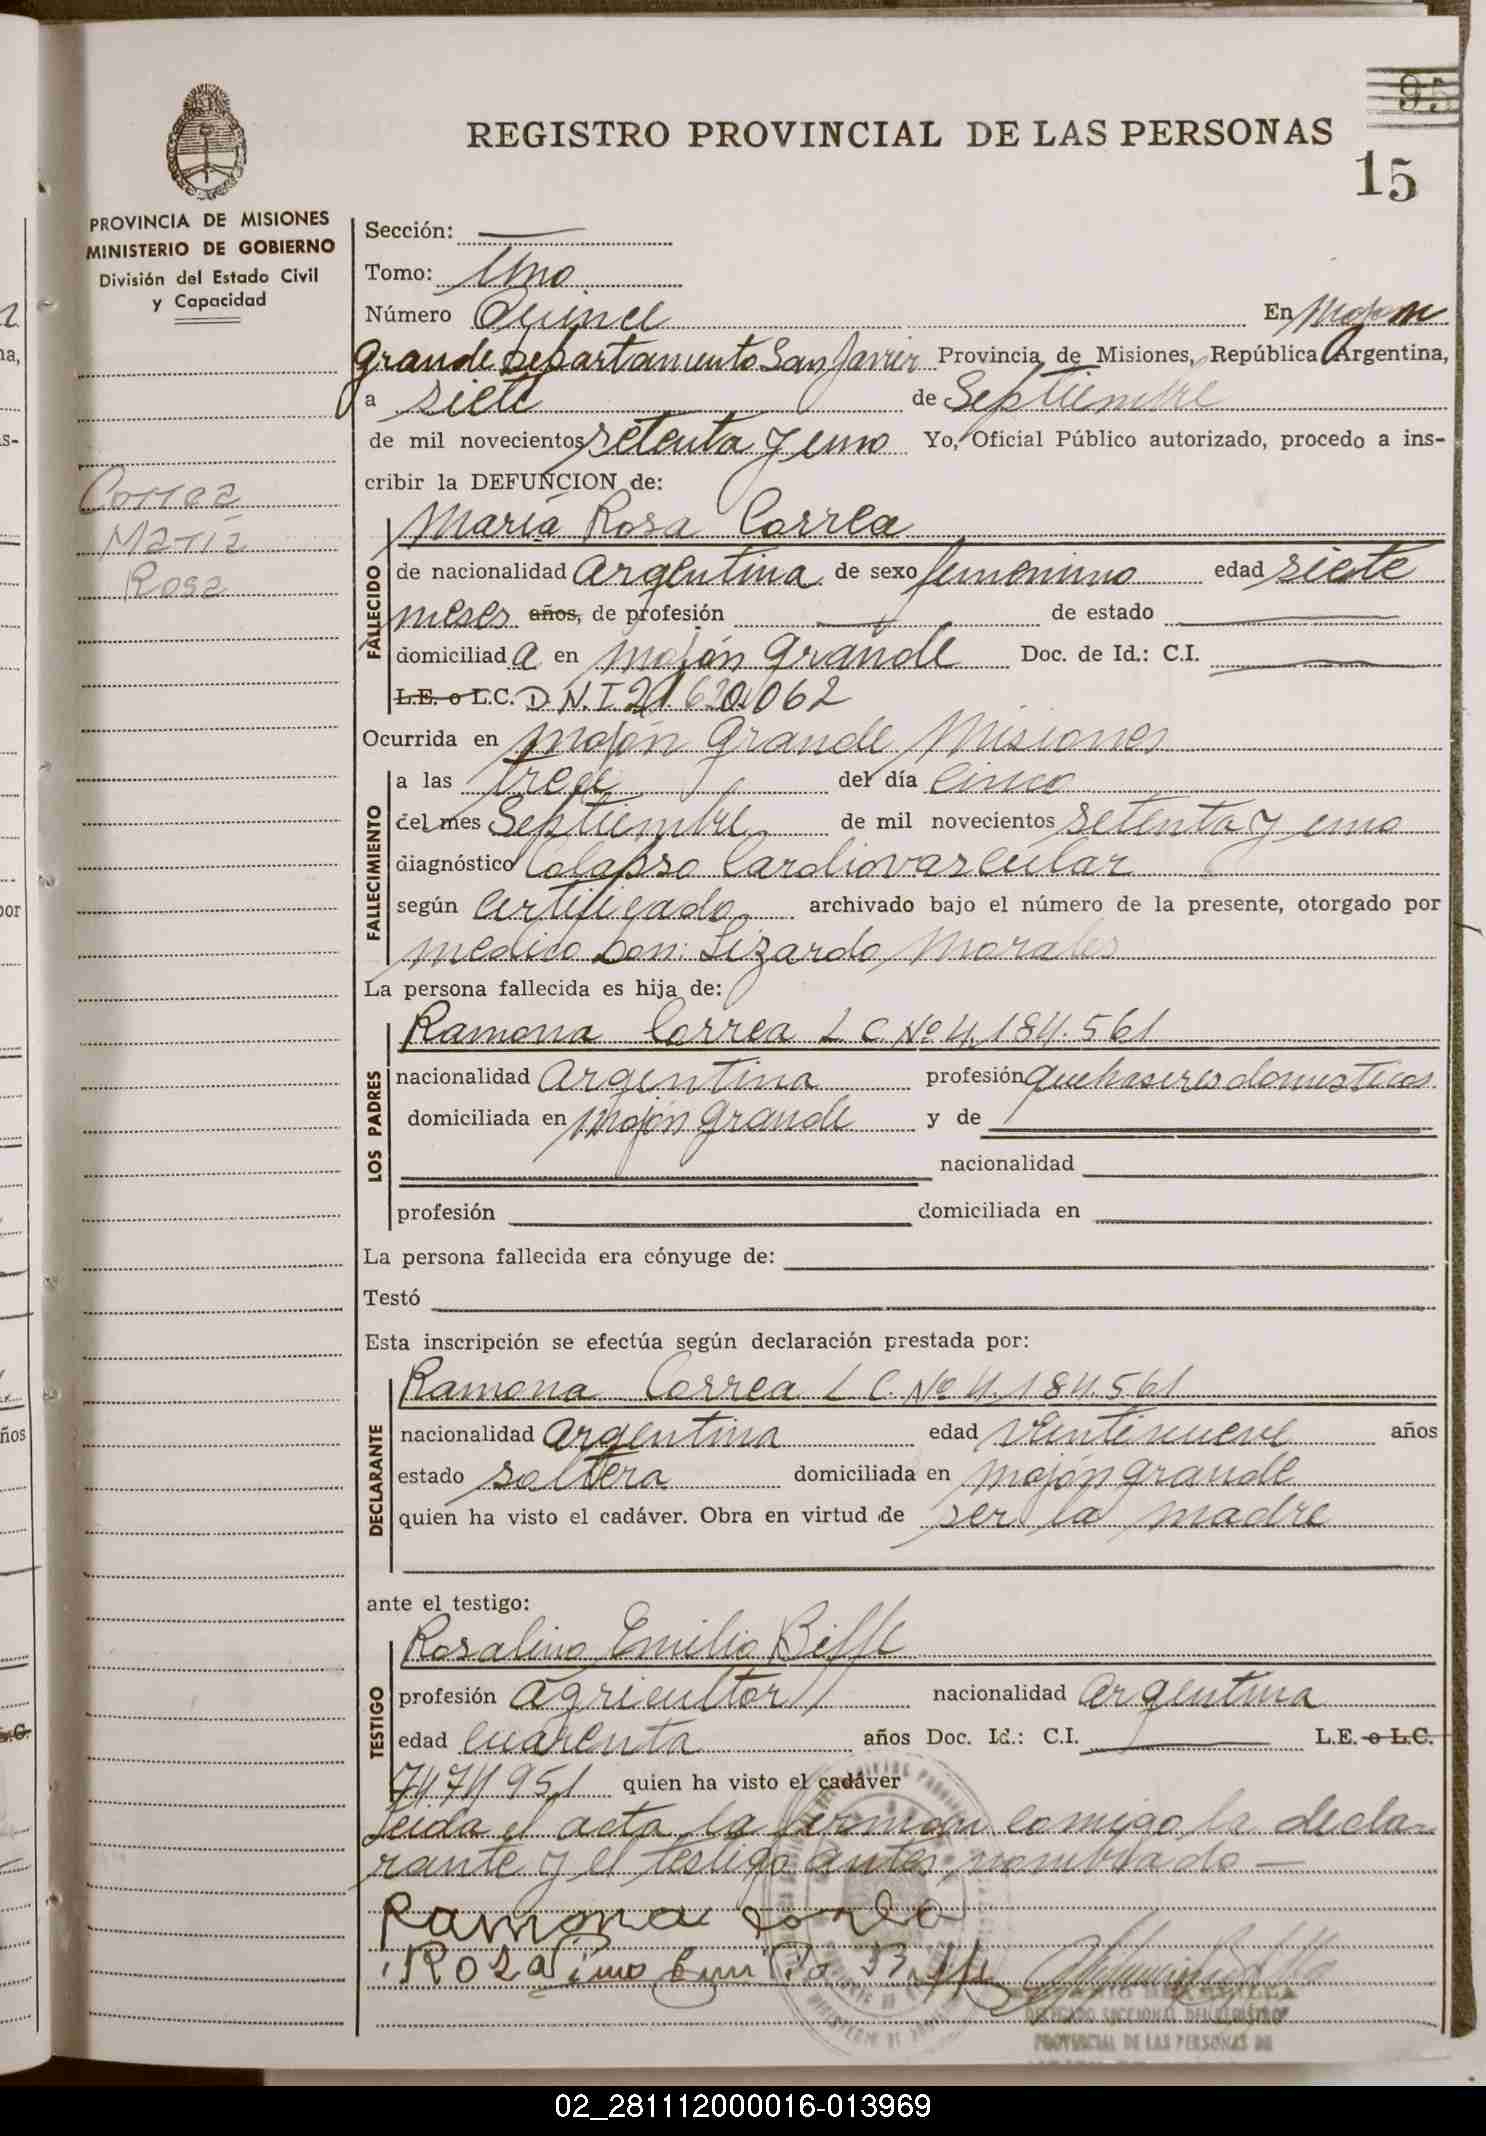 95
REGISTRO PROVINCIAL DE LAS PERSONAS
15
PROVINCIA DE MISIONES
MINISTERIO DE GOBIERNO
División del Estado Civil
y Capacidad
Correa
Maria
Rosa
Sección:
Tomo: Uno
Número Quince En Mojon
Grande Departamento San Javier Provincia de Misiones, República Argentina,
a siete de Septiembre
de mil novecientos setenta y uno Yo, Oficial Público autorizado, procedo a ins-
cribir la DEFUNCION de:
Maria Rosa Correa
FALLECIDO
de nacionalidad Argentina de sexo femenino edad siete
meses años, de profesión de estado
domiciliada en Mojón Grande Doc. de Id.: C.I.
L.E. o L.C. D.N.I 21.620.062
Ocurrida en Mojón Grande Misiones
FALLECIMIENTO
a las trece del día cinco
del mes Septiembre de mil novecientos setenta y uno
diagnóstico Colapso Cardiovascular
según Certificado archivado bajo el número de la presente, otorgado por
medico Don: Lizardo Morales
La persona fallecida es hija de:
LOS PADRES
Ramona Correa L C Nº 4.184.561
nacionalidad Argentina profesión quehaseres domesticos
domiciliada en Mojón Grande y de
nacionalidad
profesión domiciliada en
La persona fallecida era cónyuge de:
Testó
Esta inscripción se efectúa según declaración prestada por:
DECLARANTE
Ramona Correa L C. Nº 4.184.561
nacionalidad Argentina edad veintinueve años
estado soltera domiciliada en Mojón Grande
quien ha visto el cadáver. Obra en virtud de ser la madre
ante el testigo:
TESTIGO
Rosalino Emilio
profesión agricultor nacionalidad Argentina
edad cuarenta años Doc. Id.: C.I. L.E. o L.C.
7474951 quien ha visto el cadáver
Leida el acta la firman comigo la decla-
rante y el testigo antes nombrado
Ramona Correa
DELEGADO SECCIONAL DEL REGISTRO
PROVINCIAL DE LAS PERSONAS DE
02_281112000016-013969